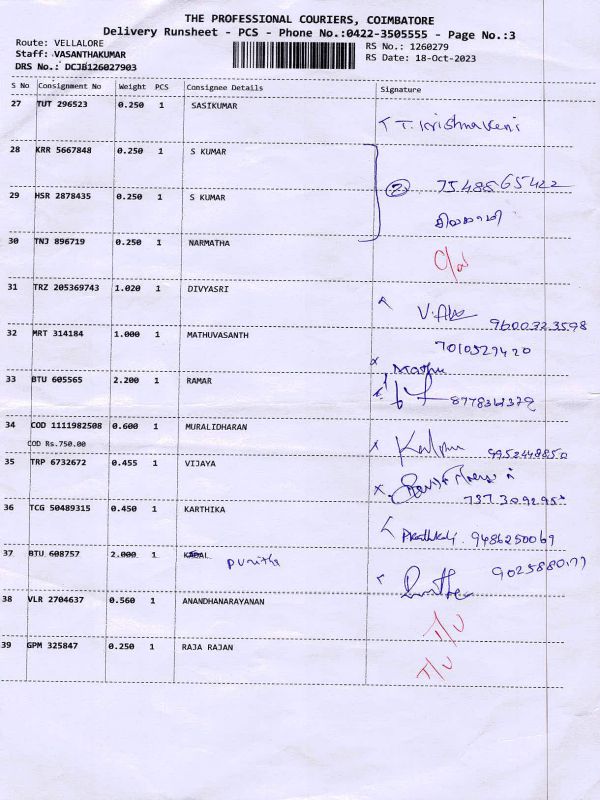 THE PROFESSIONAL COURIERS, COIMBATORE
Delivery Runsheet - PCS - Phone No.:0422-3505555 - Page No.:3
Route: VELLALORE RS No.: 1260279
Staff: VASANTHAKUMAR RS Date: 18-Oct-2023
DRS No.: DCJB126027903
S No Consignment No Weight PCS Consignee Details Signature
27 TUT 296523 0.250 1 SASIKUMAR
T. Krishnaveni
28 KRR 5667848 0.250 1 S KUMAR
7548565422
29 HSR 2878435 0.250 1 S KUMAR
30 TNJ 896719 0.250 1 NARMATHA
31 TRZ 205369743 1.020 1 DIVYASRI
9600323598
32 MRT 314184 1.000 1 MATHUVASANTH
7010529420
33 BTU 605565 2.200 1 RAMAR
34 COD 1111982508 0.600 1 MURALIDHARAN
COD Rs.750.00
9952448850
35 TRP 6732672 0.455 1 VIJAYA
36 TCG 50489315 0.450 1 KARTHIKA
9486250069
37 BTU 608757 2.000 1 Punitha
38 VLR 2704637 0.560 1 ANANDHANARAYANAN
39 GPM 325847 0.250 1 RAJA RAJAN